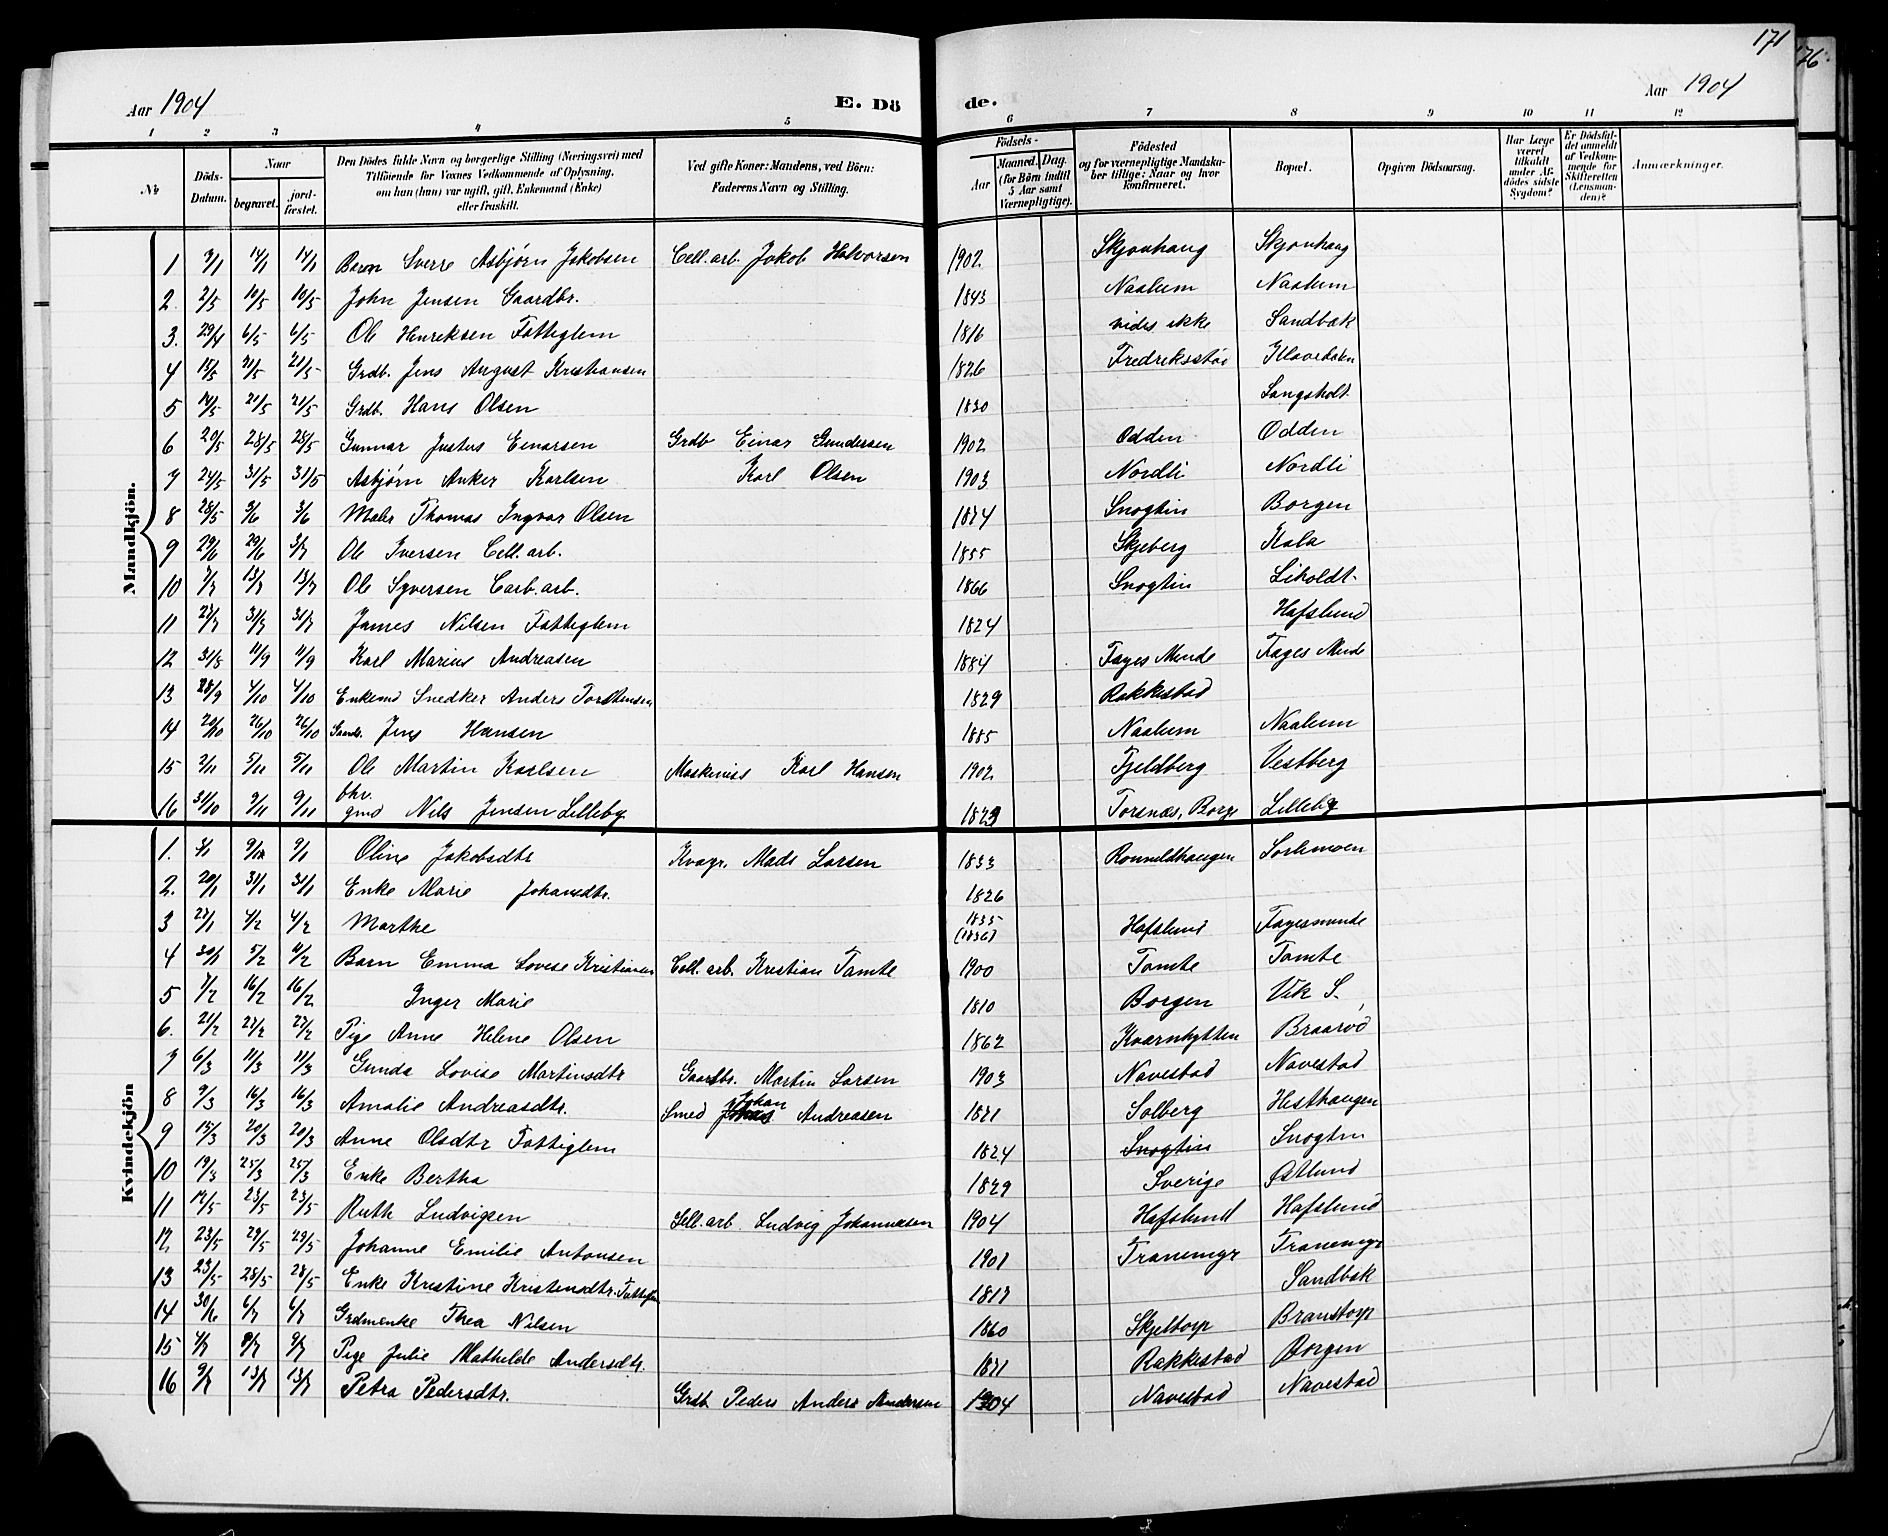 171
176
Aar 1904 E. Dö de. Aar 1904
1 2 3 4 5 6 7 8 9 10 11 12
No
Döds-Datum.
Naar
begravet. jord-fæstet.
Den Dödes fulde Navn og borgerlige Stilling (Næringsvei) med
Tilföiende for Voxnes Vedkommende af Oplysning,
om han (hun) var ugift, gift, Enkemand (Enke)
eller fraskilt.
Ved gifte Koner: Mandens, ved Börn:
Faderens Navn og Stilling.
Födsels-
Aar
Maaned. Dag.
(for Börn indtil
5 Aar samt
Værnepligtige).
Födested
og for værnepligtige Mandska-
ber tillige: Naar og hvor
Konfirmeret.
Bopæl.
Opgiven Dödsaarsag.
Har Læge
været
tilkaldt
under Af-
dödes sidste
Sygdom?
Er Dödsfal-
det anmeldt
af Vedkom-
mende for
Skifteretten
(Lensman-
den)?
Anmærkninger.
Mandkjön.
1 9/1 14/1 14/1 Barn Sverre Asbjørn Jakobsen Cell. arb. Jakob Halvorsen 1902 Skjonhaug Skjonhaug
2. 2/5 10/5 10/5 John Jensen Gaardbr. 1843 Naalum Naalum
3. 29/4 6/5 6/5 Ole Henriksen Fattiglem 1816 vides ikke Sandbak
4 15/5 21/5 21/5 Grdb. Jens August Kristiansen 1826 Fredriksstad
5 14/5 21/5 21/5 Grdb. Hans Olsen 1830 Langsholt
6 20/5 28/5 28/5 Gunnar Justus Einarsen Grdb Einar Gundersen 1902 Odden Odden
7 24/5 31/5 31/5 Asbjørn Anker Karlsen Karl Olsen 1903 Nordli Nordli
8 28/5 3/6 3/6 Maler Thomas Ingvar Olsen 1874 Snogtin Borgen
9 29/6 29/6 3/7 Ole Iversen Cell. arb. 1855 Skjeberg Kala
10 7/7 13/7 13/7 Ole Syversen Carb. arb. 1866 Snogtin Liholdt
11 27/7 31/7 31/7 James Nilsen Fattiglem 1824 Hafslund
12 31/8 4/9 4/9 Karl Marius Andreasen 1884 Fages Minde Fages Minde
13 28/9 4/10 4/10 Enkemd Snedker Anders Torstensen 1829 Rakkestad
14 20/10 26/10 26/10 Jens Hansen 1885 Naalum Naalum
15 2/11 5/11 5/11 Ole Martin Karlsen Maskinist Karl Hansen 1902 Fjeldberg Vestberg
16 31/10 9/11 9/11 fhv. gmd Nils Jensen Lilleby 1823 Torsnæs, Borge Lilleby
Kvindekjön
1. 3/1 9/1 9/1 Oline Jakobsdtr Kvagr. Mads Larsen 1833 Romeldhaugen Sorlimoen
2. 20/1 31/1 31/1 Enke Marie Johansdtr. 1826
3 27/1 4/2 4/2 Marthe 1835 (1836) Hafslund Fagesminde
4 30/1 5/2 4/2 Barn Emma Lovise Kristiansen Cell. arb. Kristian Tamte 1900 Tamte Tomte
5 7/2 16/2 16/2 Inger Marie 1810 Borgen Vik S.
6. 21/2 27/2 27/2 Pige Anne Helene Olsen 1862 Kvarnhytten Braarød
7 6/3 11/3 11/3 Gunda Lovise Martinsdtr Gaardbr. Martin Larsen 1903 Navestad Navestad
8 9/3 16/3 16/3 Amalie Andreasdtr. Smed Johan Andreasen 1871 Solberg Histhaugen
9 15/3 20/3 20/3 Anne Olsdtr Fattiglem 1824 Snogtin Snogtin
10 19/3 25/3 25/3 Enke Bertha 1829 Sverige Østlund
11 19/5 23/5 23/5 Ruth Ludvigsen Cell. arb. Ludvig Johannesen 1904 Hafslund Hafslund
12. 23/5 29/5 29/5 Johanne Emilie Antonsen 1901 Tranemyr Tranemyr
13 23/5 28/5 28/5 Enke Kristine Kristensdtr. Fattiglem 1817 Sandbak
14 30/6 6/7 6/7 Grdmenke Thea Nilsen 1860 Skjeltorp Branstorp
15 4/7 9/7 9/7 Pige Julie Mathilde Andersdtr. 1871 Rakkestad Borgen
16 9/7 13/7 13/7 Petra Pedersdtr. Grdb Peders Anders Andersen 1904 Navestad Navestad